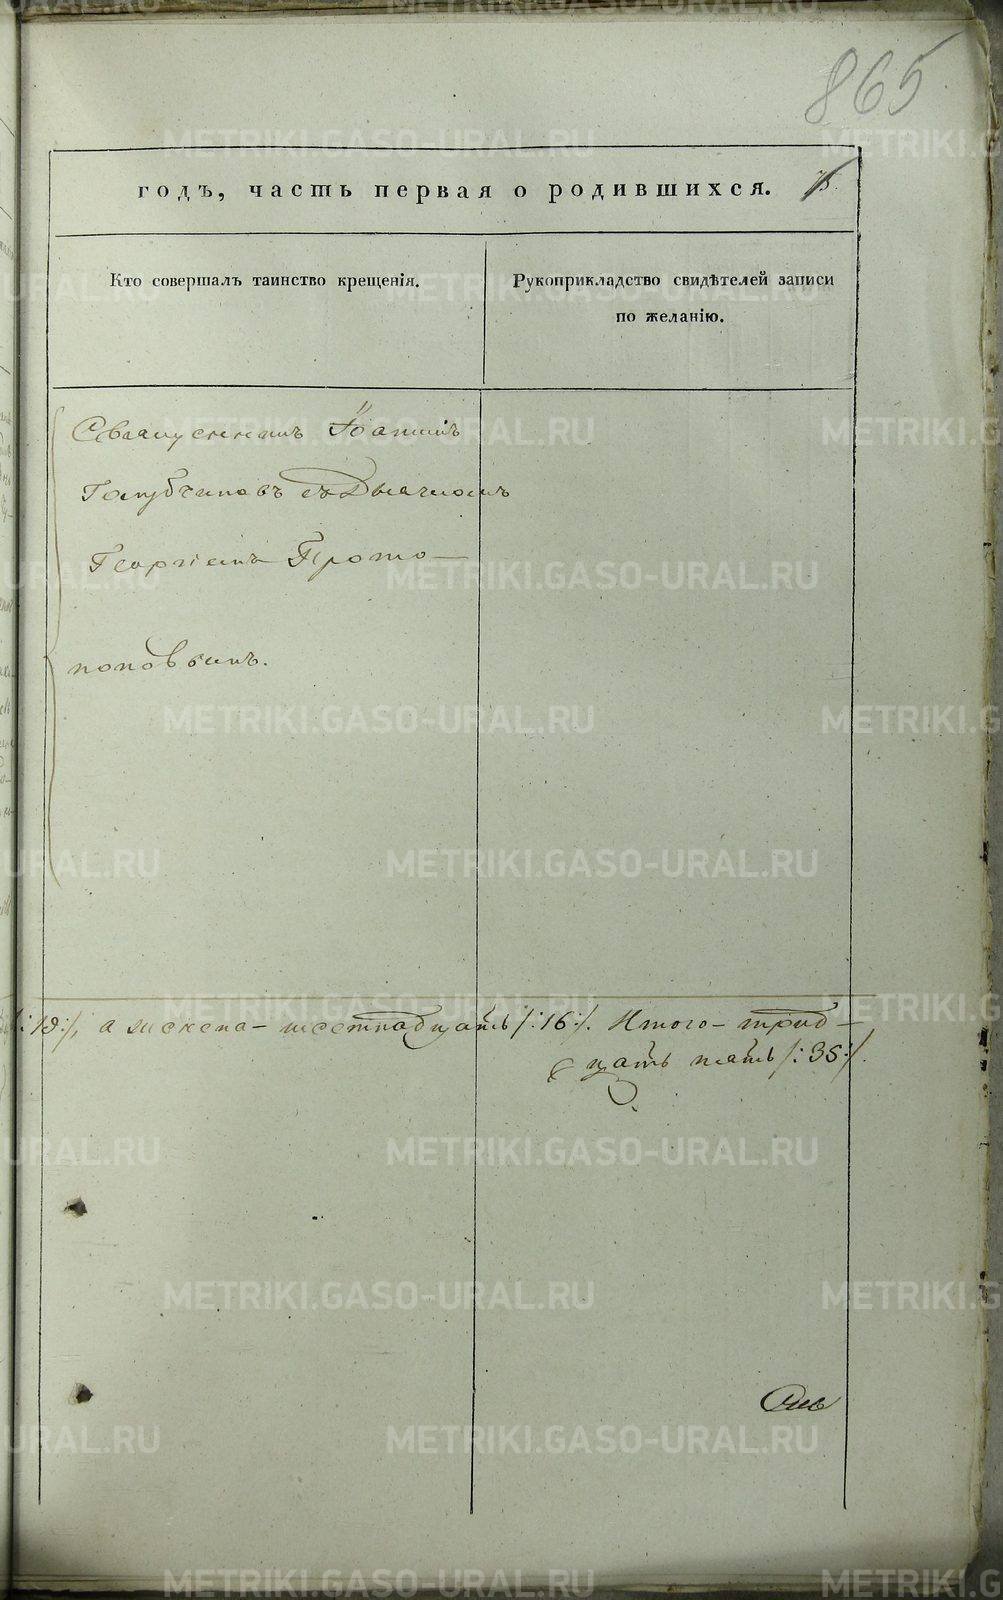 865
годъ, часть первая о родившихся.
Кто совершалъ таинство крещенія.
Рукоприкладство свидѣтелей записи
по желанію.
Священникъ Іоаннъ
Голубчиковъ съ Дьячкомъ
Георгіемъ Прото-
поповымъ.
/:19:/, а женска - шестнадцать /:16:/. Итого - трид-
цать пять /:35:/.
METRIKI.GASO-URAL.RU